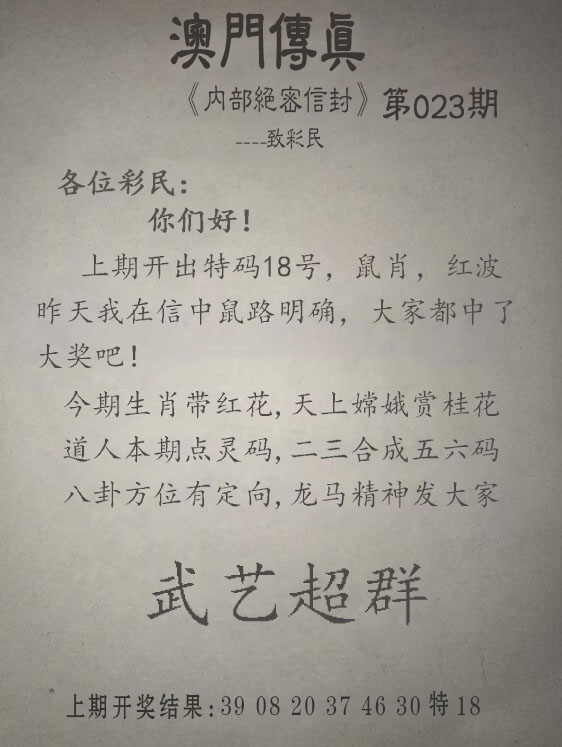 澳門傳眞
《内部絕密信封》第023期
----致彩民
各位彩民：
你们好！
上期开出特码18号，鼠肖，红波
昨天我在信中鼠路明确，大家都中了
大奖吧！
今期生肖带红花，天上嫦娥赏桂花
道人本期点灵码，二三合成五六码
八卦方位有定向，龙马精神发大家
武艺超群
上期开奖结果：39 08 20 37 46 30 特 18